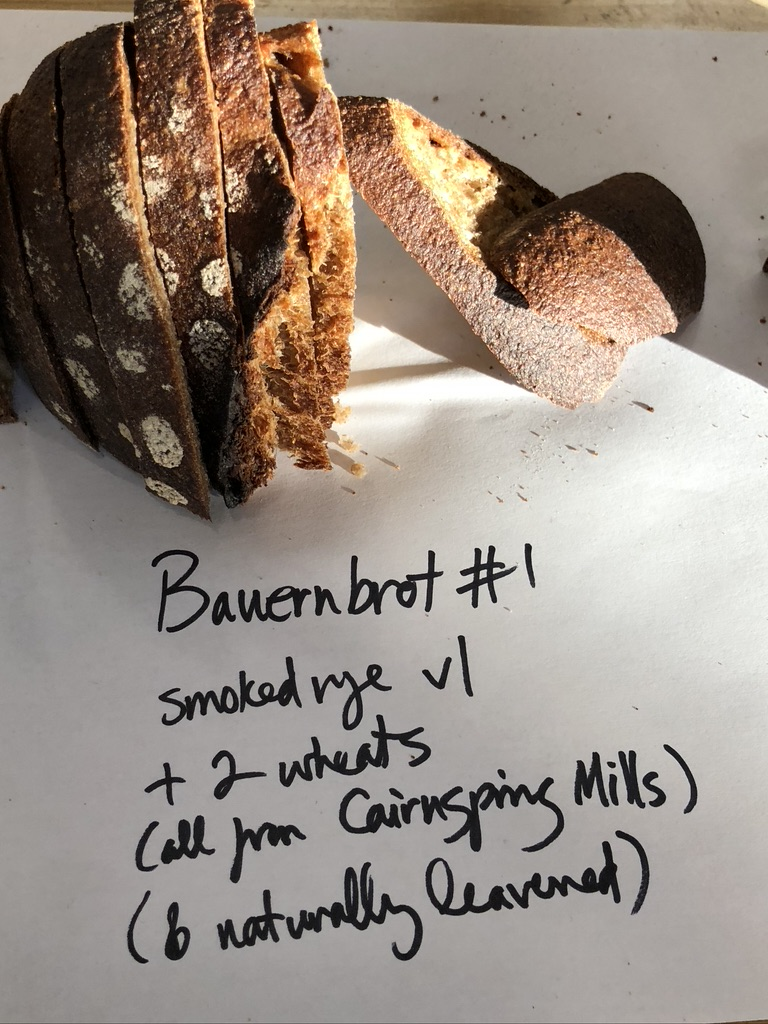 Bauernbrot #1
smoked rye v1
+ 2 wheats
(all from Cairnspring Mills)
(& naturally leavened)